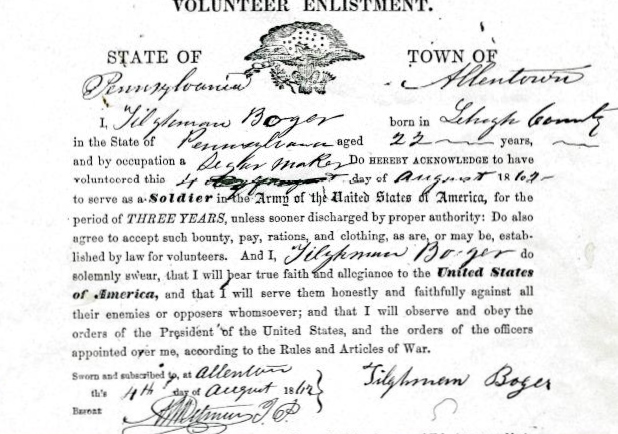 VOLUNTEER ENLISTMENT.
STATE OF TOWN OF
Pennsylvania Allentown
I, Tilghman Boger born in Lehigh County
in the State of Pennsylvania aged 22 years,
and by occupation a Segar Maker Do HEREBY ACKNOWLEDGE to have
volunteered this 4 day of August 1862
to serve as a Soldier in the Army of the United States of America, for the
period of THREE YEARS, unless sooner discharged by proper authority: Do also
agree to accept such bounty, pay, rations, and clothing, as are, or may be, estab-
lished by law for volunteers. And I, Tilghman Boger do
solemnly swear, that I will bear true faith and allegiance to the United States
of America, and that I will serve them honestly and faithfully against all
their enemies or opposers whomsoever; and that I will observe and obey the
orders of the President of the United States, and the orders of the officers
appointed over me, according to the Rules and Articles of War.
Sworn and subscribed to, at Allentown
this 4th day of August 1862
Tilghman Boger
BEFORE J. P.